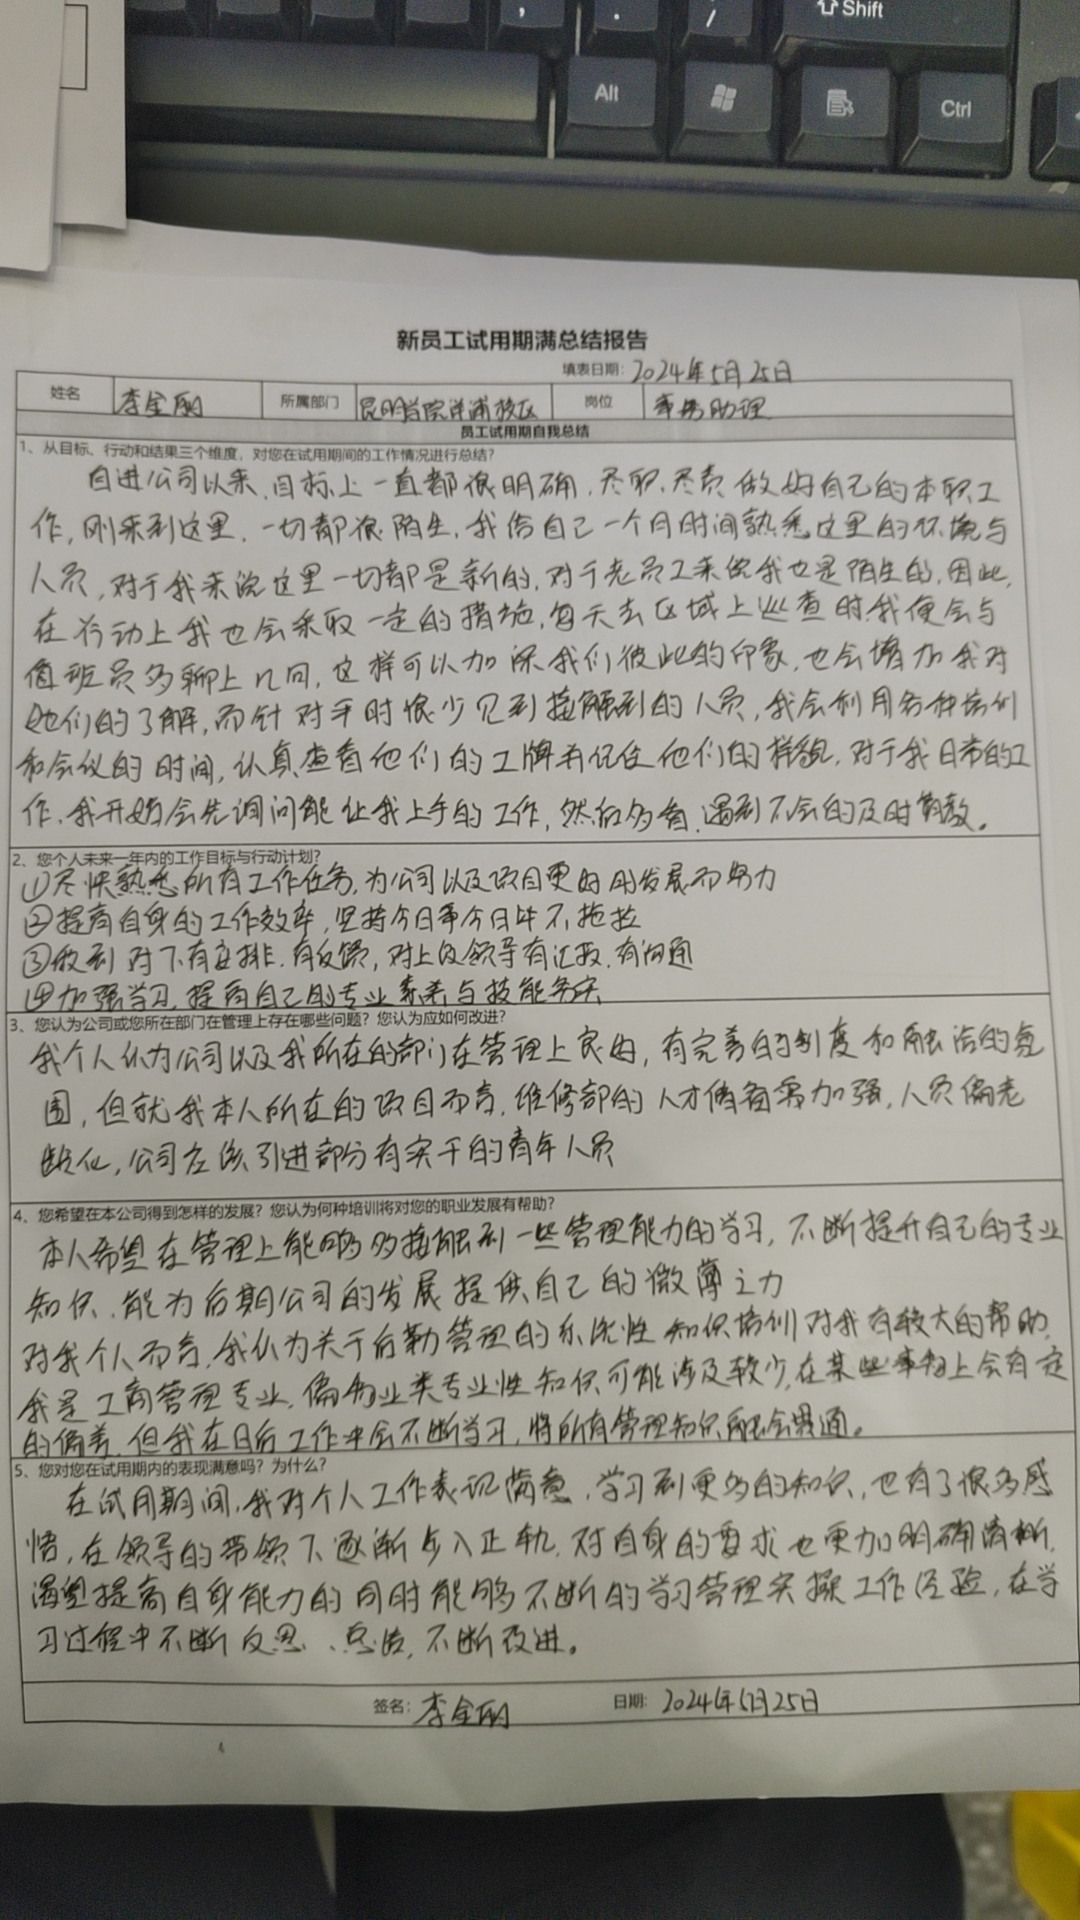 ,
.
/
Shift
Alt
Ctrl
新员工试用期满总结报告
填表日期：2024年5月25日
姓名 李金丽 所属部门 昆明学院洋浦校区 岗位 事务助理
员工试用期自我总结
1、从目标、行动和结果三个维度，对您在试用期间的工作情况进行总结？
自进公司以来，目标上一直都很明确，尽职尽责做好自己的本职工
作，刚来到这里，一切都很陌生，我给自己一个月时间熟悉这里的环境与
人员，对于我来说这里一切都是新的，对于老员工来说我也是陌生的，因此，
在行动上我也会采取一定的措施，每天去区域上巡查时我便会与
值班员多聊上几问，这样可以加深我们彼此的印象，也会增加我对
她们的了解，而针对平时很少见到接触到的人员，我会利用各种培训
和会议的时间，认真查看他们的工牌并记住他们的样貌，对于我日常的工
作，我开始会先询问能让我上手的工作，然后多看，遇到不会的及时请教。
2、您个人未来一年内的工作目标与行动计划？
①尽快熟悉所有工作任务，为公司以及项目更好的发展而努力
②提高自身的工作效率，坚持今日事今日毕不拖拉
③做到对下有安排，有反馈，对上级领导有汇报，有沟通
④加强学习，提高自己的专业素养与技能务实
3、您认为公司或您所在部门在管理上存在哪些问题？您认为应如何改进？
我个人认为公司以及我所在的部门在管理上良好，有完善的制度和融洽的氛
围，但就我本人所在的项目而言，维修部的人才储备需加强，人员偏老
龄化，公司应该引进部分有实干的青年人员
4、您希望在本公司得到怎样的发展？您认为何种培训将对您的职业发展有帮助？
本人希望在管理上能够多接触到一些管理能力的学习，不断提升自己的专业
知识，能为后期公司的发展提供自己的微薄之力
对我个人而言，我认为关于后勤管理的系统性知识培训对我有较大的帮助，
我是工商管理专业，偏物业类专业性知识可能涉及较少，在某些事物上会有一定
的偏差，但我在日后工作中会不断学习，将所有管理知识融会贯通。
5、您对您在试用期内的表现满意吗？为什么？
在试用期间，我对个人工作表现满意，学习到更多的知识，也有了很多感
悟，在领导的带领下逐渐步入正轨，对自身的要求也更加明确清晰，
渴望提高自身能力的同时能够不断的学习管理实操工作经验，在学
习过程中不断反思、总结，不断改进。
签名：李金丽 日期：2024年5月25日